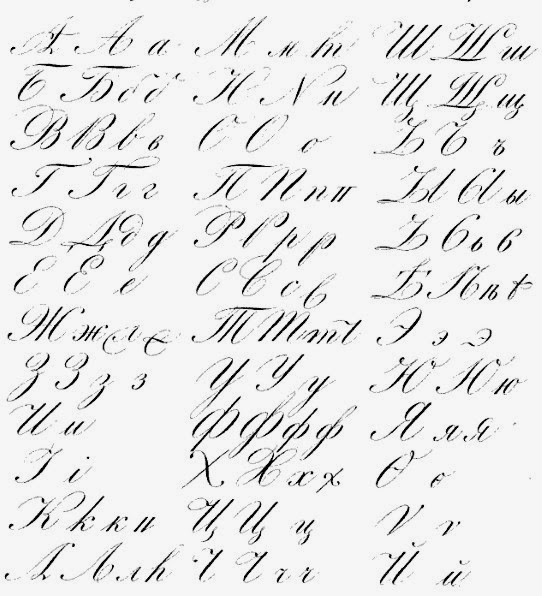 А А а М м т Ш Ш ш
Б Б б б Н N н Щ Щ щ
В В в в О О о Ъ Ъ ъ
Г Г г г П П п п Ы Ы ы
Д Д д д Р Р р р Ь Ь ь в
Е Е е С С с с Ѣ Ѣ ѣ ѣ
Ж ж ж ж Т Т т т Э э э
З З з з У У у Ю Ю ю
И и Ф Ф ф ф Я я я
І і Х Х х х Ѳ ѳ
К к к н Ц Ц ц Ѵ ѵ
Л Л л л Ч Ч ч ч Й й